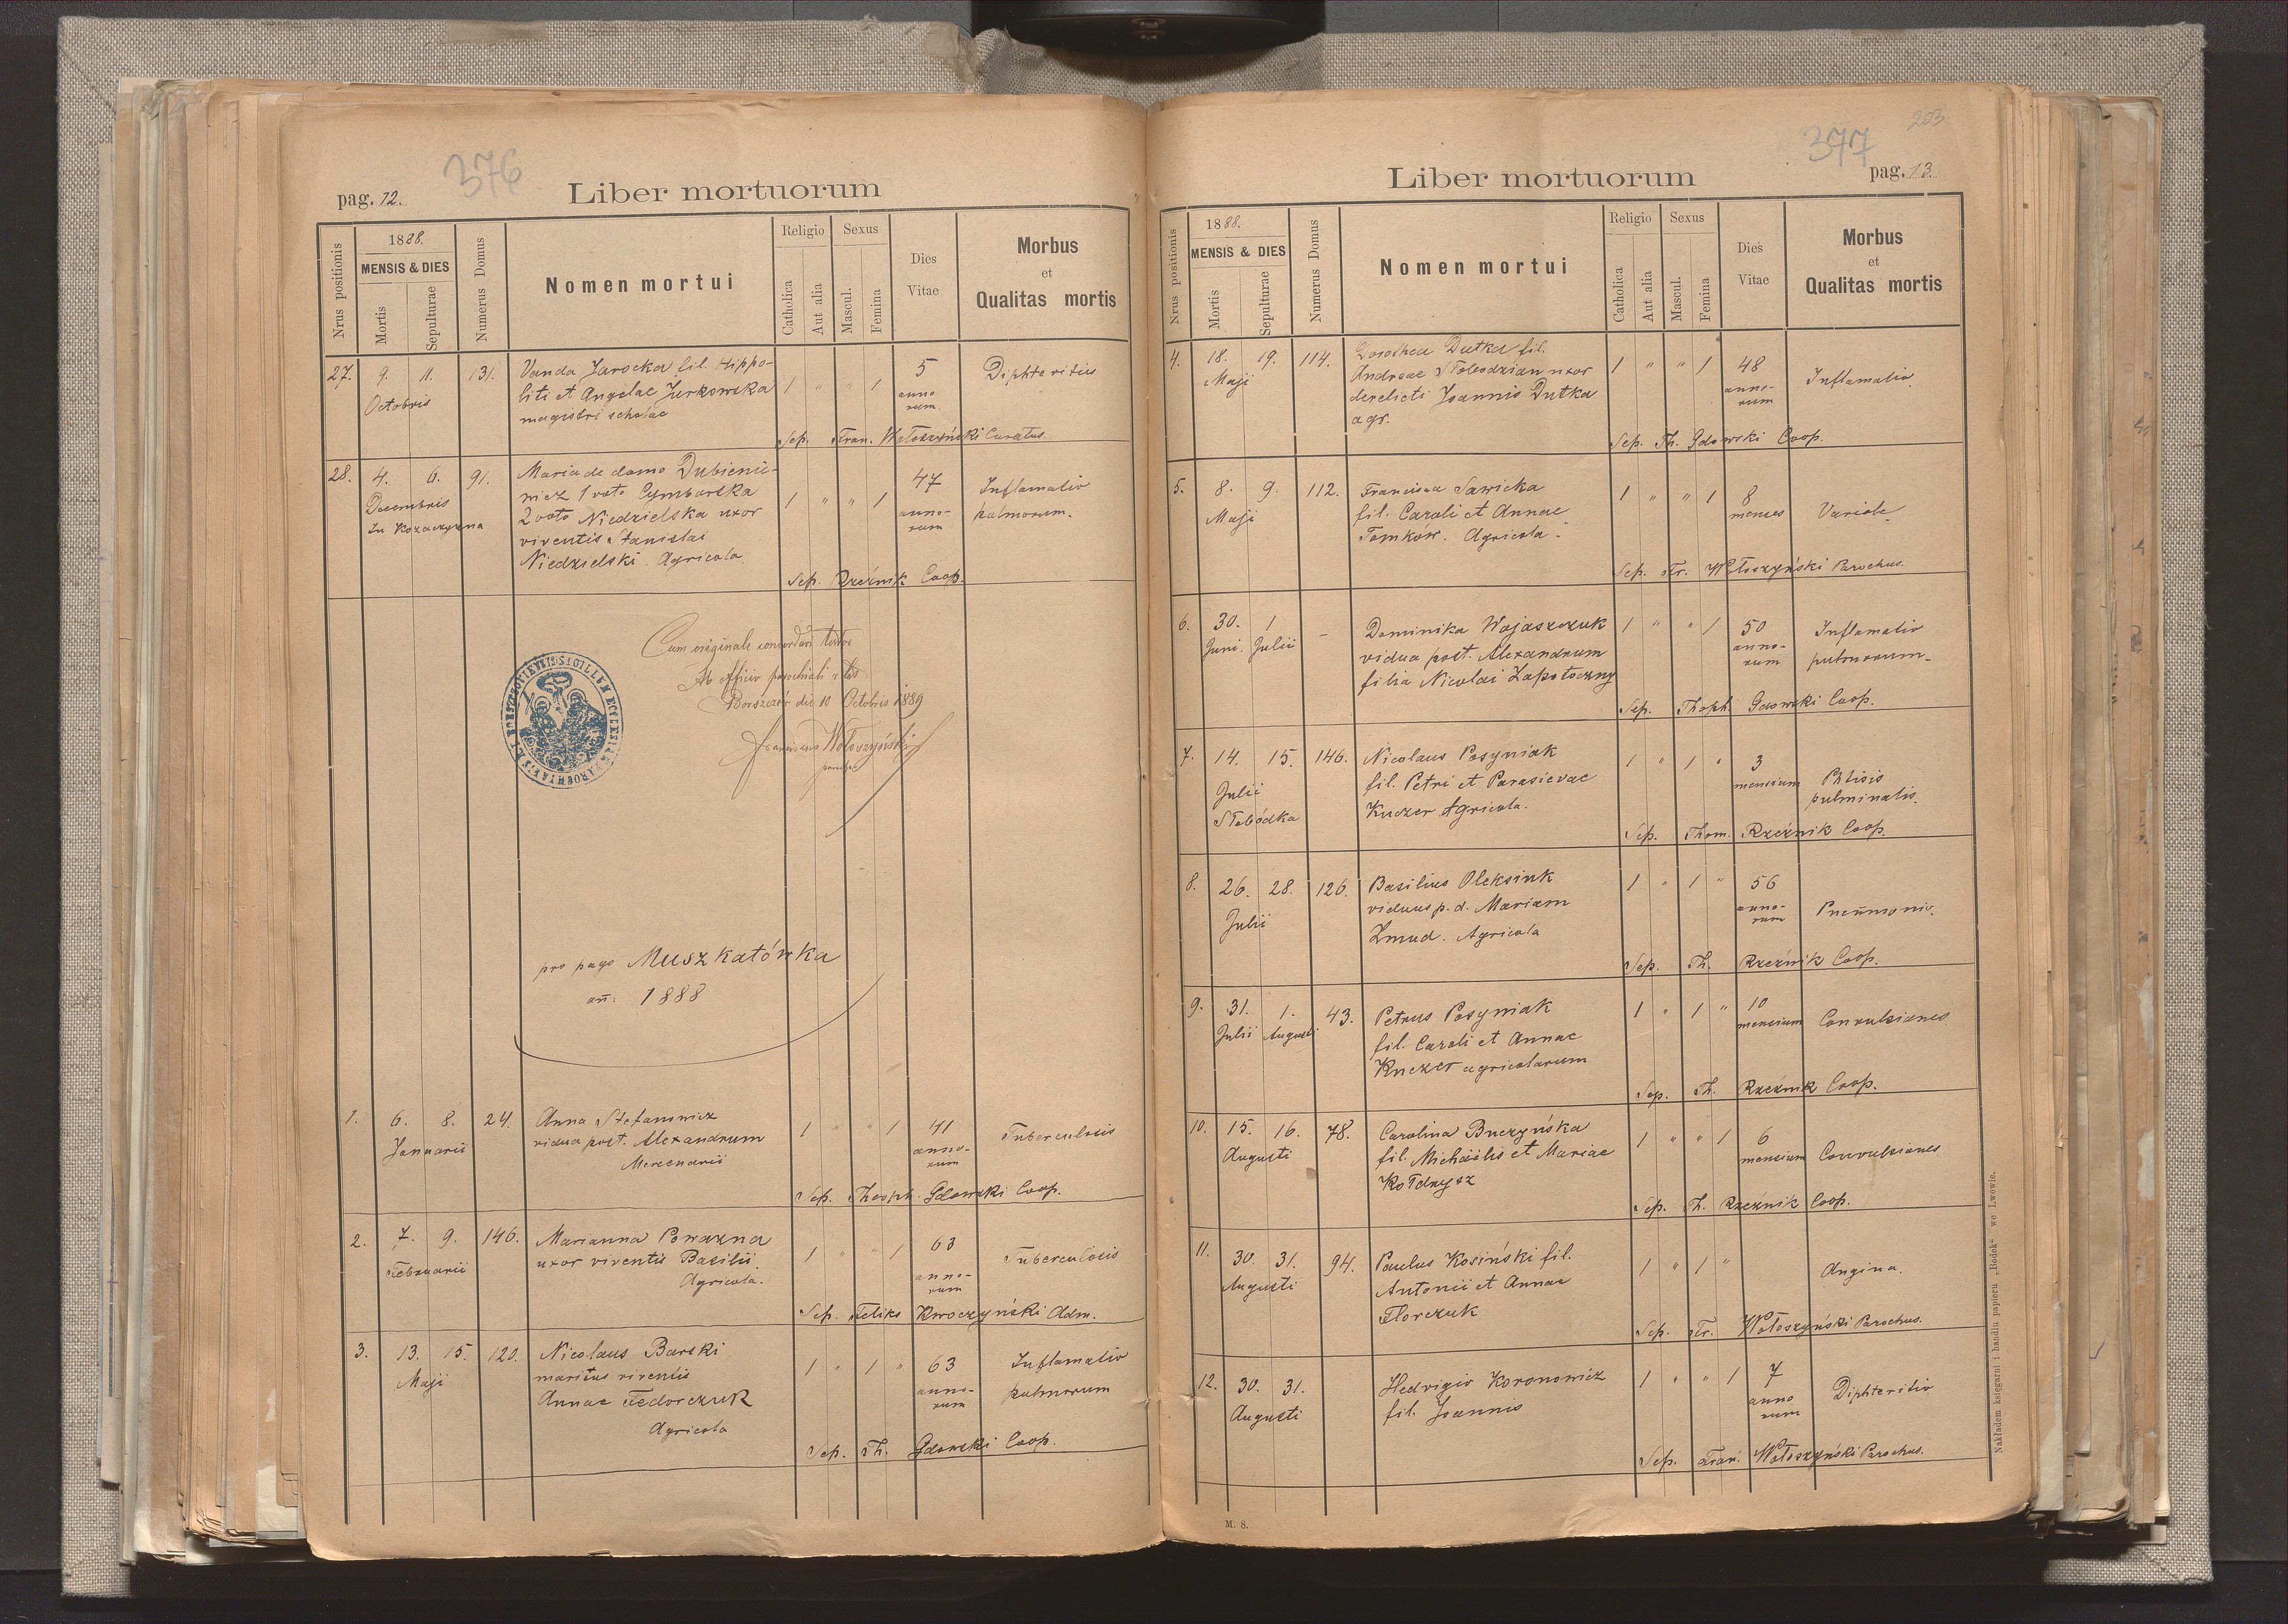 376
pag. 12.
Liber mortuorum
Nrus positionis
1888.
MENSIS & DIES
Mortis
Sepulturae
Numerus Domus
Nomen mortui
Religio
Catholica
Aut alia
Sexus
Mascul.
Femina
Dies
Vitae
Morbus
et
Qualitas mortis
27. 9. 11. 131. Vanda Jarocka fil. Hippo- 1 " " 1 5 Diphteritis
Octobris liti et Angelae Jurkowska anno
magistri scholae rum
Sep. Fran. Wołoszyński Curatus.
28. 4. 6. 91. Maria de domo Dubienie- 1 " " 1 47 Inflamatio
Decembris wicz 1 voto Cymbarska anno- pulmorum.
In Kozaczyzna 2 voto Niedzielska uxor rum
viventis Stanislai
Niedzielski. Agricola.
Sep. Rzeźnik Coop.
Cum originali concordare testor
Ab officio parochiali r. lat.
Borszczów die 10 Octobris 1889
Franciscus Wołoszyński
parochus
pro pago Muszkatówka
an̄. 1888
1. 6. 8. 24. Anna Stefanowicz 1 " " 1 41 Tuberculosis
Januarii vidua post. Alexandrum anno-
Mercenarii rum
Sep. Theoph. Gdowski Coop.
2. 7. 9. 146. Marianna Powazna 1 " " 1 63 Tuberculosis
Februarii uxor viventis Basilii. anno-
Agricola. rum
Sep. Feliks Kwoczyński Adm.
3. 13. 15. 120. Nicolaus Barski 1 " 1 " 63 Inflamatio
Maji maritus viventis anno- pulmorum
Annae Fedorczuk rum
Agricola
Sep. Th. Gdowski Coop.
203
377
Liber mortuorum
pag. 13.
Nrus positionis
1888.
MENSIS & DIES
Mortis
Sepulturae
Numerus Domus
Nomen mortui
Religio
Catholica
Aut alia
Sexus
Mascul.
Femina
Dies
Vitae
Morbus
et
Qualitas mortis
4. 18. 19. 114. Dorothea Dutka fil. 1 " " 1 48 Inflamatio.
Maji Andreae Słobodzian uxor anno-
derelicti Joannis Dutka rum
agr.
Sep. Th. Gdowski Coop.
5. 8. 9. 112. Francisca Sawicka 1 " " 1 8 Variole
Maji fil. Caroli et Annae menses
Tomkow. Agricola.
Sep. Fr. Wołoszyński Parochus.
6. 30. 1 - Dominika Wojaszczuk 1 " " 1 50 Inflamatio
Juni. Julii vidua post. Alexandrum anno- pulmorum.
filia Nicolai Zapotoczny rum
Sep. Thoph. Gdowski Coop.
7. 14. 15. 146. Nicolaus Posyniak 1 " 1 " 3 Phtisis
Julii fil. Petri et Parasievae mensium pulminalis.
Słobódka Kuczer Agricola.
Sep. Thom. Rzeźnik Coop.
8. 26. 28. 126. Basilius Oleksiuk 1 " 1 " 56 Pneumonio.
Julii viduus p. d. Mariam anno-
Zmud. Agricola rum
Sep. Th. Rzeźnik Coop.
9. 31. 1. 43. Petrus Posyniak 1 " 1 " 10 Convulsiones
Julii Augusti fil. Caroli et Annae mensium
Kuczer agricolarum
Sep. Th. Rzeźnik Coop.
10. 15. 16. 78. Carolina Buczyńska 1 " " 1 6 Convulsiones
Augusti fil. Michaëlis et Mariae mensium
Kołdrysz
Sep. Th. Rzeźnik Coop.
11. 30. 31. 94. Paulus Kosiński fil. 1 " 1 " Angina.
Augusti Antonii et Annae
Florczuk
Sep. Fr. Wołoszyński Parochus.
12. 30. 31. Hedvigis Koronowicz 1 " " 1 7 Diphteritis
Augusti fil. Joannis anno
rum
Sep. Fran. Wołoszyński Parochus.
M. 8.
Nakładem księgarni i handlu papieru „Bodek“ we Lwowie.